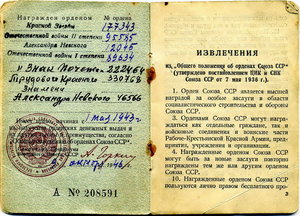 Награжден орденом № ордена
Красной Звезды 177343
Отечественной войны II степени 95535
Александра Невского 12045
Отечественной войны I степени 89634
"Знак Почета" 222464
Трудового Красного 330768
Знамени
Александра Невского 46566
1 мая 1949 г.
А № 208591
ИЗВЛЕЧЕНИЯ
из „Общего положения об орденах Союза ССР"
(утверждено постановлением ЦИК и СНК
Союза ССР от 7 мая 1936 г.).
1. Орден Союза ССР является высшей
наградой за особые заслуги в области
социалистического строительства и обороны
Союза ССР.
3. Орденами Союза ССР могут награж-
даться как отдельные граждане, так и
войсковые соединения и воинские части
Рабоче-Крестьянской Красной Армии, пред-
приятия, учреждения и организации.
4. Награжденные орденом Союза ССР
могут быть за новые заслуги повторно
награждены тем же или другим орденом
Союза ССР.
10. Награжденные орденом Союза ССР
пользуются лично правом бесплатного про-
3